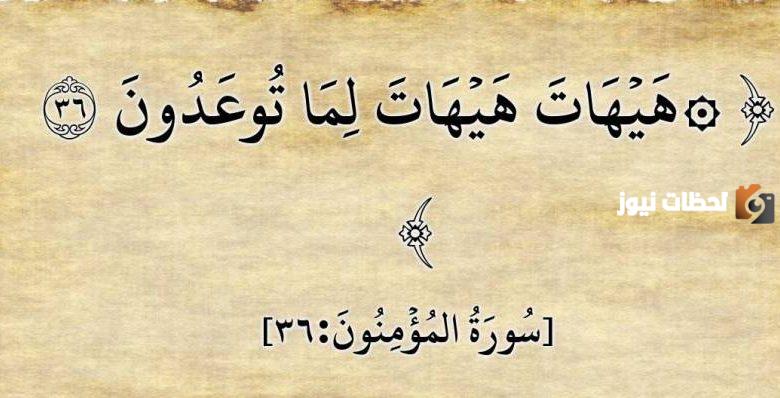 ﴿ ۞ هَيْهَاتَ هَيْهَاتَ لِمَا تُوعَدُونَ ٣٦
﴾
لحظات نيوز
[سُورَةُ المُؤْمِنُونَ:٣٦]